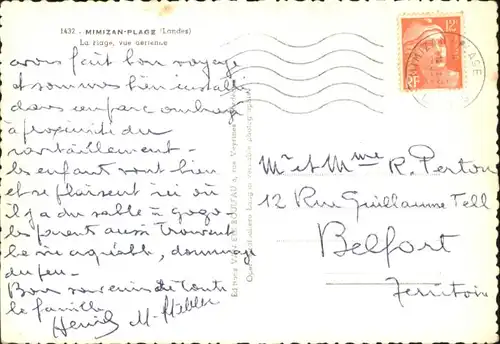 1432 - MIMIZAN-PLAGE (Landes)
La Plage, vue aérienne
avons fait bon voyage
et sommes bien installés
dans un parc ombragé
à proximité du
ravitaillement -
les enfants vont bien
et se plaisent ici où
il y a du sable à gogo -
les parents aussi trouvent
la vie agréable, dommage
du feu -
Bon souvenir de toute
la famille
Henri
12F
RF
Mr et Mme R. Perton
12 Rue Guillaume Tell
Belfort
Territoire